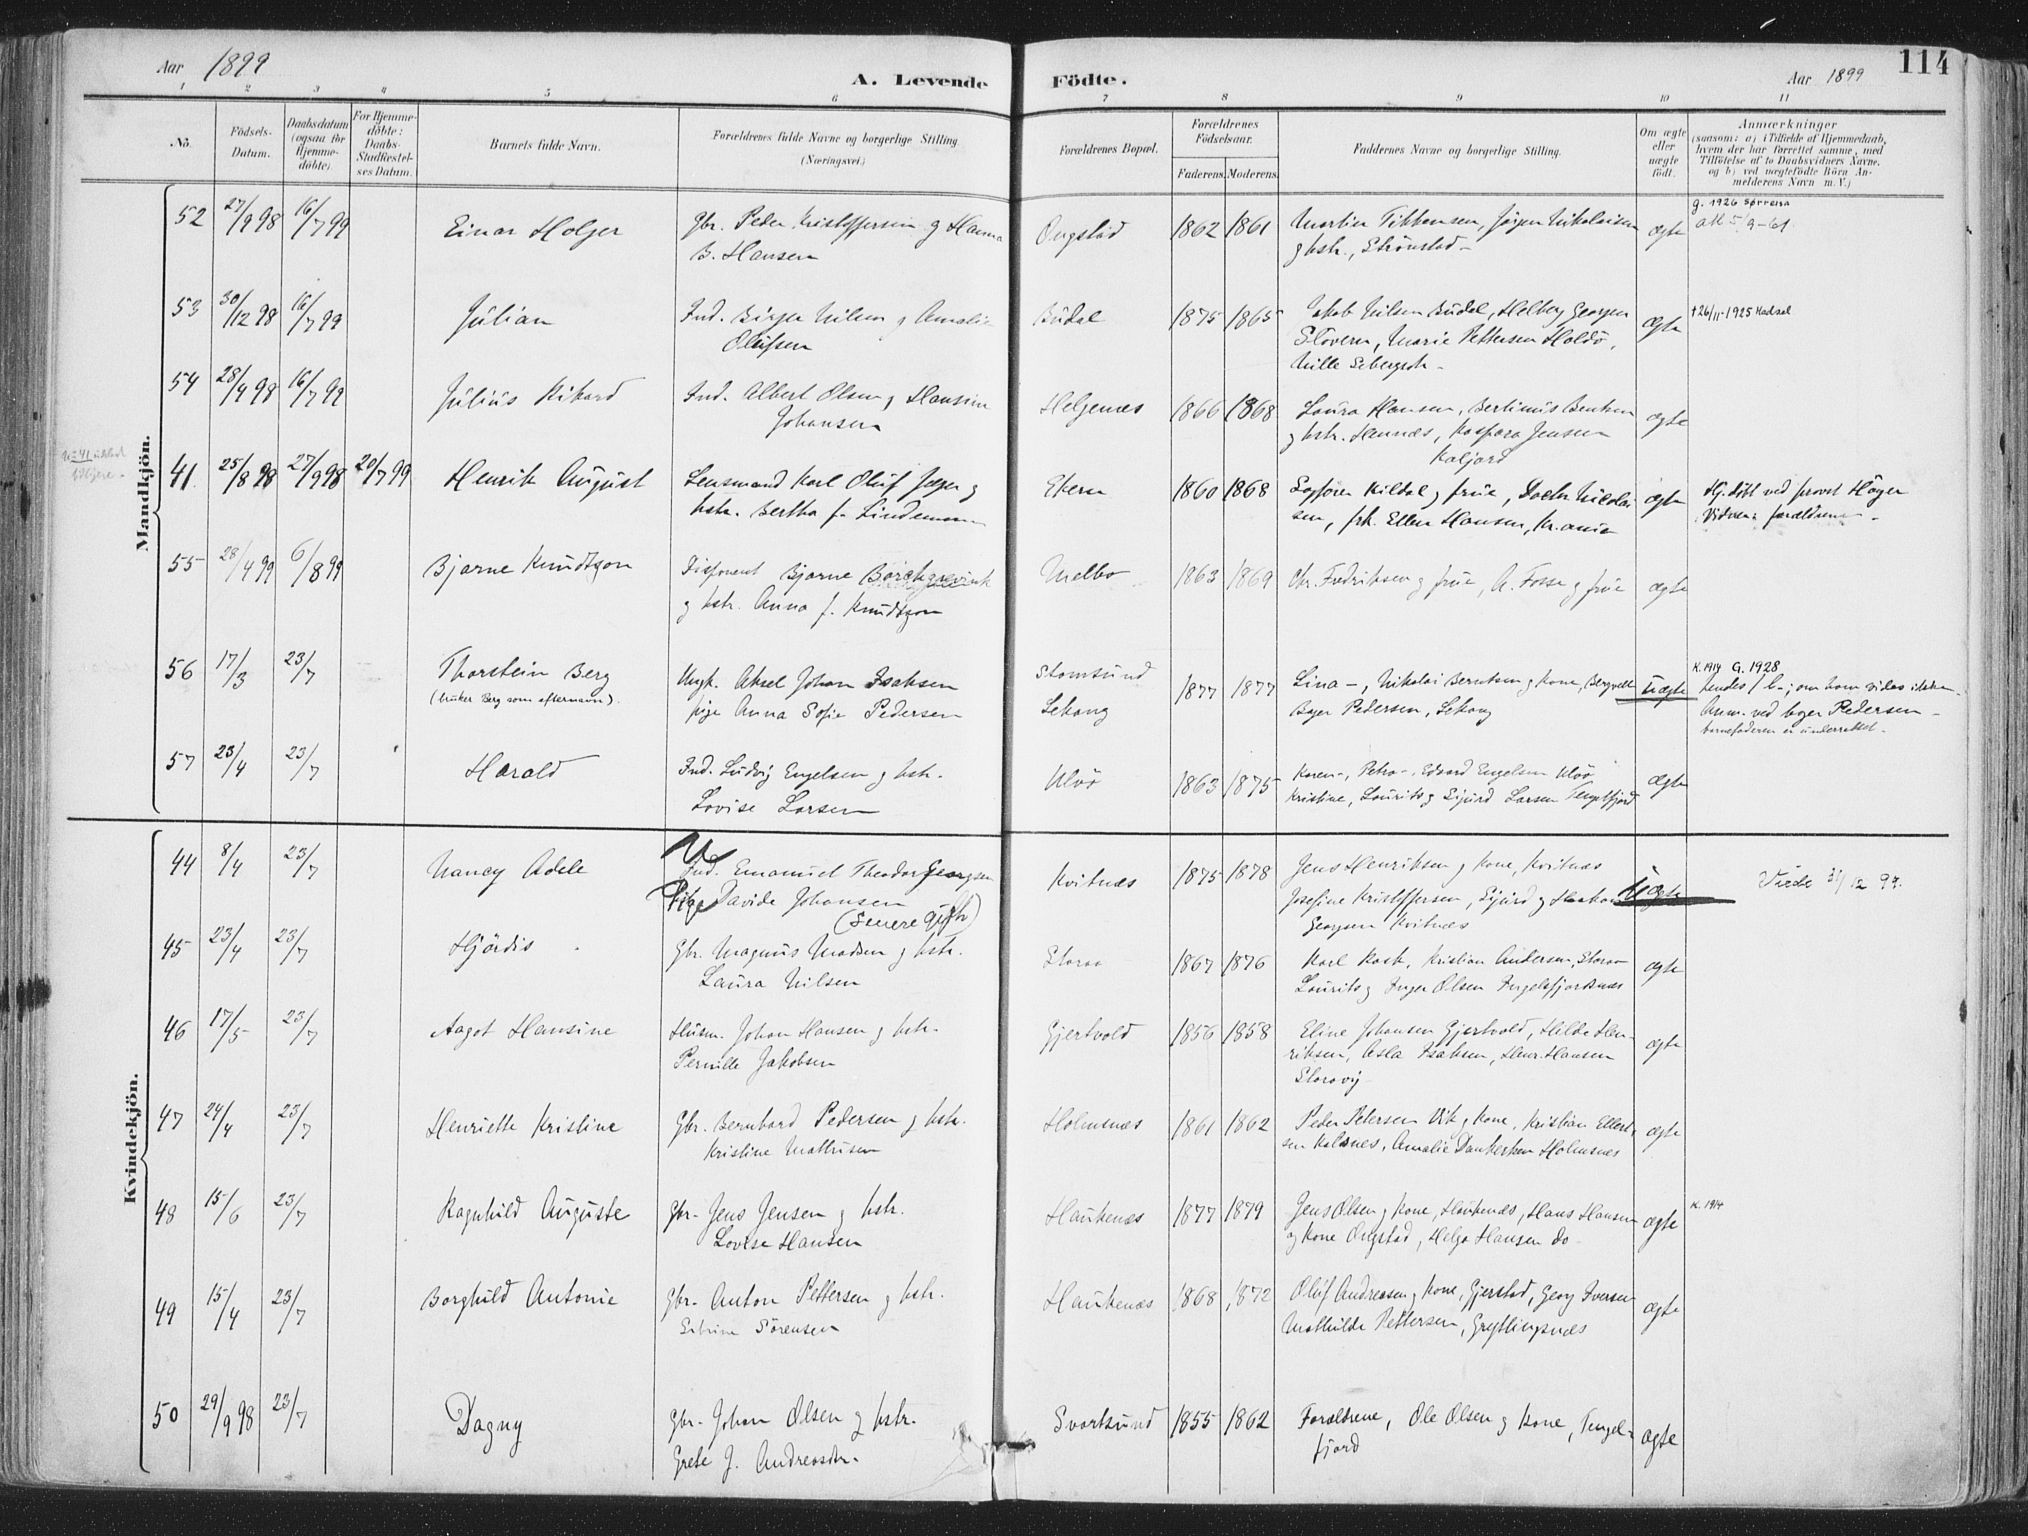 Aar 1899
A. Levende
Födte.
Aar 1899
114
1 2 3 4 5 6 7 8 9 10 11
No.
Födsels-
Datum.
Daabsdatum
(ogsaa for
Hjemme-
døbte).
For Hjemme-
døbte:
Daabs-
Stadfæstel-
ses Datum.
Barnets fulde Navn.
Forældrenes fulde Navne og borgerlige Stilling
(Næringsvei.)
Forældrenes Bopæl.
Forældrenes
Födselsaar.
Faderens. Moderens.
Faddernes Navne og borgerlige Stilling.
Om ægte
eller
uægte
født.
Anmærkninger
(saasom: a) i Tilfælde af Hjemmedaab,
hvem der har forrettet samme, med
Tilföielse af to Daabsvidners Navne.
og b) ved uægtefödte Börn An-
melderens Navn m. V.)
Mandkjön.
52 27/9 98 16/7 99 Einar Holger Gbr. Peder Kristoffersen g Hanna
B. Hansen
Ongstad 1862 1861 Martin Tikkansen, Jörgen Nikolaisen
g hstr., Strönstad -
ægte
g. 1926 Sørreisa
53 30/12 98 16/7 99 Julian Ind. Birger Nilsen g Amalie
Olufsen
Budal 1875 1865 Jakob Nilsen Budal, Helberg Georgsen
Slöveren, Marie Pettersen Holdö,
ægte
†26/11-1925 Hadsel
54 28/4 98 16/7 99 Julius Rikard Ind. Albert Olsen g Hansine
Johansen
Helgenæs 1866 1868 Laura Hansen, Bertinius Bentsen
g hstr. Hennæs, Kaspara Jensen
Kaljord
ægte
41 25/8 98 27/9 98 20/7 99 Henrik August Lensmand Karl Oluf Jæger g
hstr. Bertha f. Lindemann
Ekern 1860 1868 Sagförer Kildal g frue, Doctr. Nicolai
sen, frk. Ellen Hansen, Kr.ania
ægte
Hj. döbt ved provst Höyer
Vidner: forældrene -
55 28/4 99 6/8 99 Bjarne Knudtzon Disponent Bjarne Borchgrevink
g hstr. Anna f. Knudtzon
Melbo 1863 1869 Chr. Fredriksen g frue, A. Fosse g frue ægte
56 17/3 23/7 Thorstein Berg
(bruker Berg som efternavn).
Ungk. Aksel Johan Isaksen
pige Anna Sofie Pedersen
Stomsund
Sekong
1877 1877 Lina -, Nikolai Berntsen g kone,
Boyer Pedersen, Sekong
uægte
K. 1914 G. 1928
Anm. ved boyer Pedersen -
barnefaderen er underrettet.
57 23/4 23/7 Harald Ind. Ludvig Engelsen g hstr.
Lovise Larsen
Ulvö 1863 1875 Karen-, Petra-, Edvard Engelsen Ulvö
Kristine, Laurits g Sigurd Larsen Tengelfjord
ægte
Kvindekjön.
44 8/4 23/7 Nancy Adele Ind. Emanuel Theodor Georgsen
Pige Davide Johansen
(Senere gift)
Kvitnæs 1875 1878 Jens Henriksen g kone, Kvitnæs
Josefine Kristoffersen, Sigurd g Haakon
Georgsen Kvitnæs
Uægte
Viede 31/12 99.
45 23/4 23/7 Hjördis Gbr. Magnus Madsen g hstr.
Laura Nilsen
Storaa 1867 1876 Karl Rask, Kristian Andersen, Storaa
Laurits g Inger Olsen Ingelsfjordnæs
ægte
46 17/5 23/7 Aagot Hansine Husm. Johan Hansen g hstr.
Pernille Jakobsen
Gjertvold 1856 1858 Eline Johansen Gjertvold, Hilda Hen-
riksen, Asla Isaksen, Henr. Hansen
Storvig
ægte
47 24/4 23/7 Henriette Kristine Gbr. Bernhard Pedersen g hstr.
Kristine Mathisen
Holmsnæs 1861 1862 Peder Petersen Vik g kone, Kristian Ellert-
sen Kalsnes, Amalie Dankertsen Holmsnæs
ægte
48 15/6 23/7 Ragnhild Auguste Gbr. Jens Jensen g hstr.
Lovise Hansen
Haukenæs 1877 1879 Jens Olsen g kone, Haukenæs, Hans Hansen
og kone Ongstad, Helga Hansen do
ægte
K. 1914
49 15/4 23/7 Borghild Antonie Gbr. Anton Pettersen g hstr.
Sörensen
Haukenæs 1868 1872 Oluf Andreasen g kone, Gjerstad, Georg Iversen
Mathilde Pettersen, Gryttingsnæs
ægte
50 29/9 98 23/7 Dagny Gbr. Johan Olsen g hstr.
Grete J. Andreasdtr.
Svartsund 1855 1862 Forældrene, Ole Olsen g kone, Tengel-
fjord
ægte